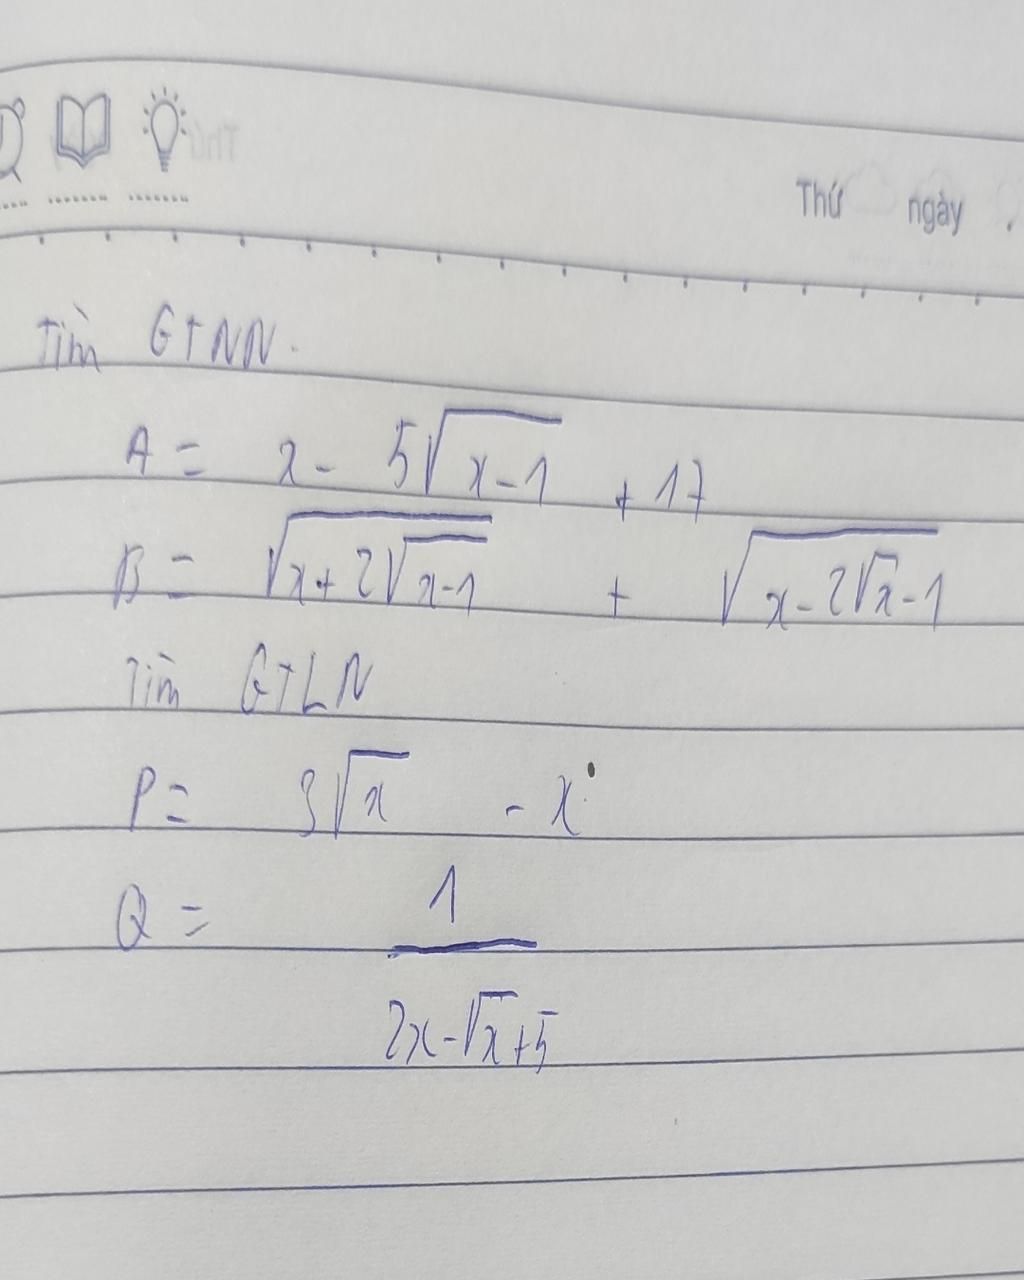 Thứ ngày
Tìm GTNN.
A = x - 5√(x-1) + 17
B = √(x+2√(x-1)) + √(x-2√x-1)
Tìm GTLN
P = 3√x - x
Q = 1/(2x-√x+5)